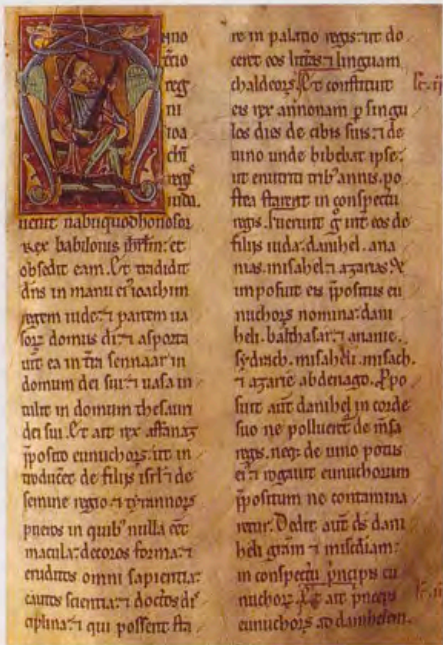 nno
tercio
reg
ni
ioa
chi
regis
iuda.
uenit nabuquodhonosor
Rex babilonis ihrlm: et
obsedit eam. Et tradidit
dns in manu ei' ioachim
regem iude: ⁊ partem ua
soꝝ domus di: ⁊ asporta
uit ea in tra sennaar in
domum dei sui: ⁊ uasa in
tulit in domum thesauri
dei sui. Et ait rex asfanaz
pposito eunuchoꝝ: ut in
troduceret de filiis isrl ⁊ de
semine regio ⁊ tyrannoꝝ
pueros in quib' nulla eet
macula: decoros forma: ⁊
eruditos omni sapientia:
cautos scientia: ⁊ doctos dis
ciplina: ⁊ qui possent sta
re in palatio regis: ut do
ceret eos litas ⁊ linguam
chaldeoꝝ. Et constituit
eis rex annonam p singu
los dies de cibis suis: ⁊ de
uino unde bibebat ipse:
ut enutriti trib' annis. po
stea starent in conspectu
regis. Fuerunt g int eos de
filiis iuda: danihel. ana
nias. misahel ⁊ azarias. Et
imposuit eis ppositus eu
nuchoꝝ nomina: dani
heli. balthasar: ⁊ ananie.
sydrach. misaheli. misach.
⁊ azarie abdenago. Ppo
suit aut danihel in corde
suo ne pollueret de msa
regis. neq: de uino potus
ei': ⁊ rogauit eunuchorum
ppositum ne contamina
retur. Dedit aut ds dani
heli gram ⁊ misediam:
in conspectu pncipis eu
nuchoꝝ. Et ait pnceps
eunuchoꝝ ad danihelem.